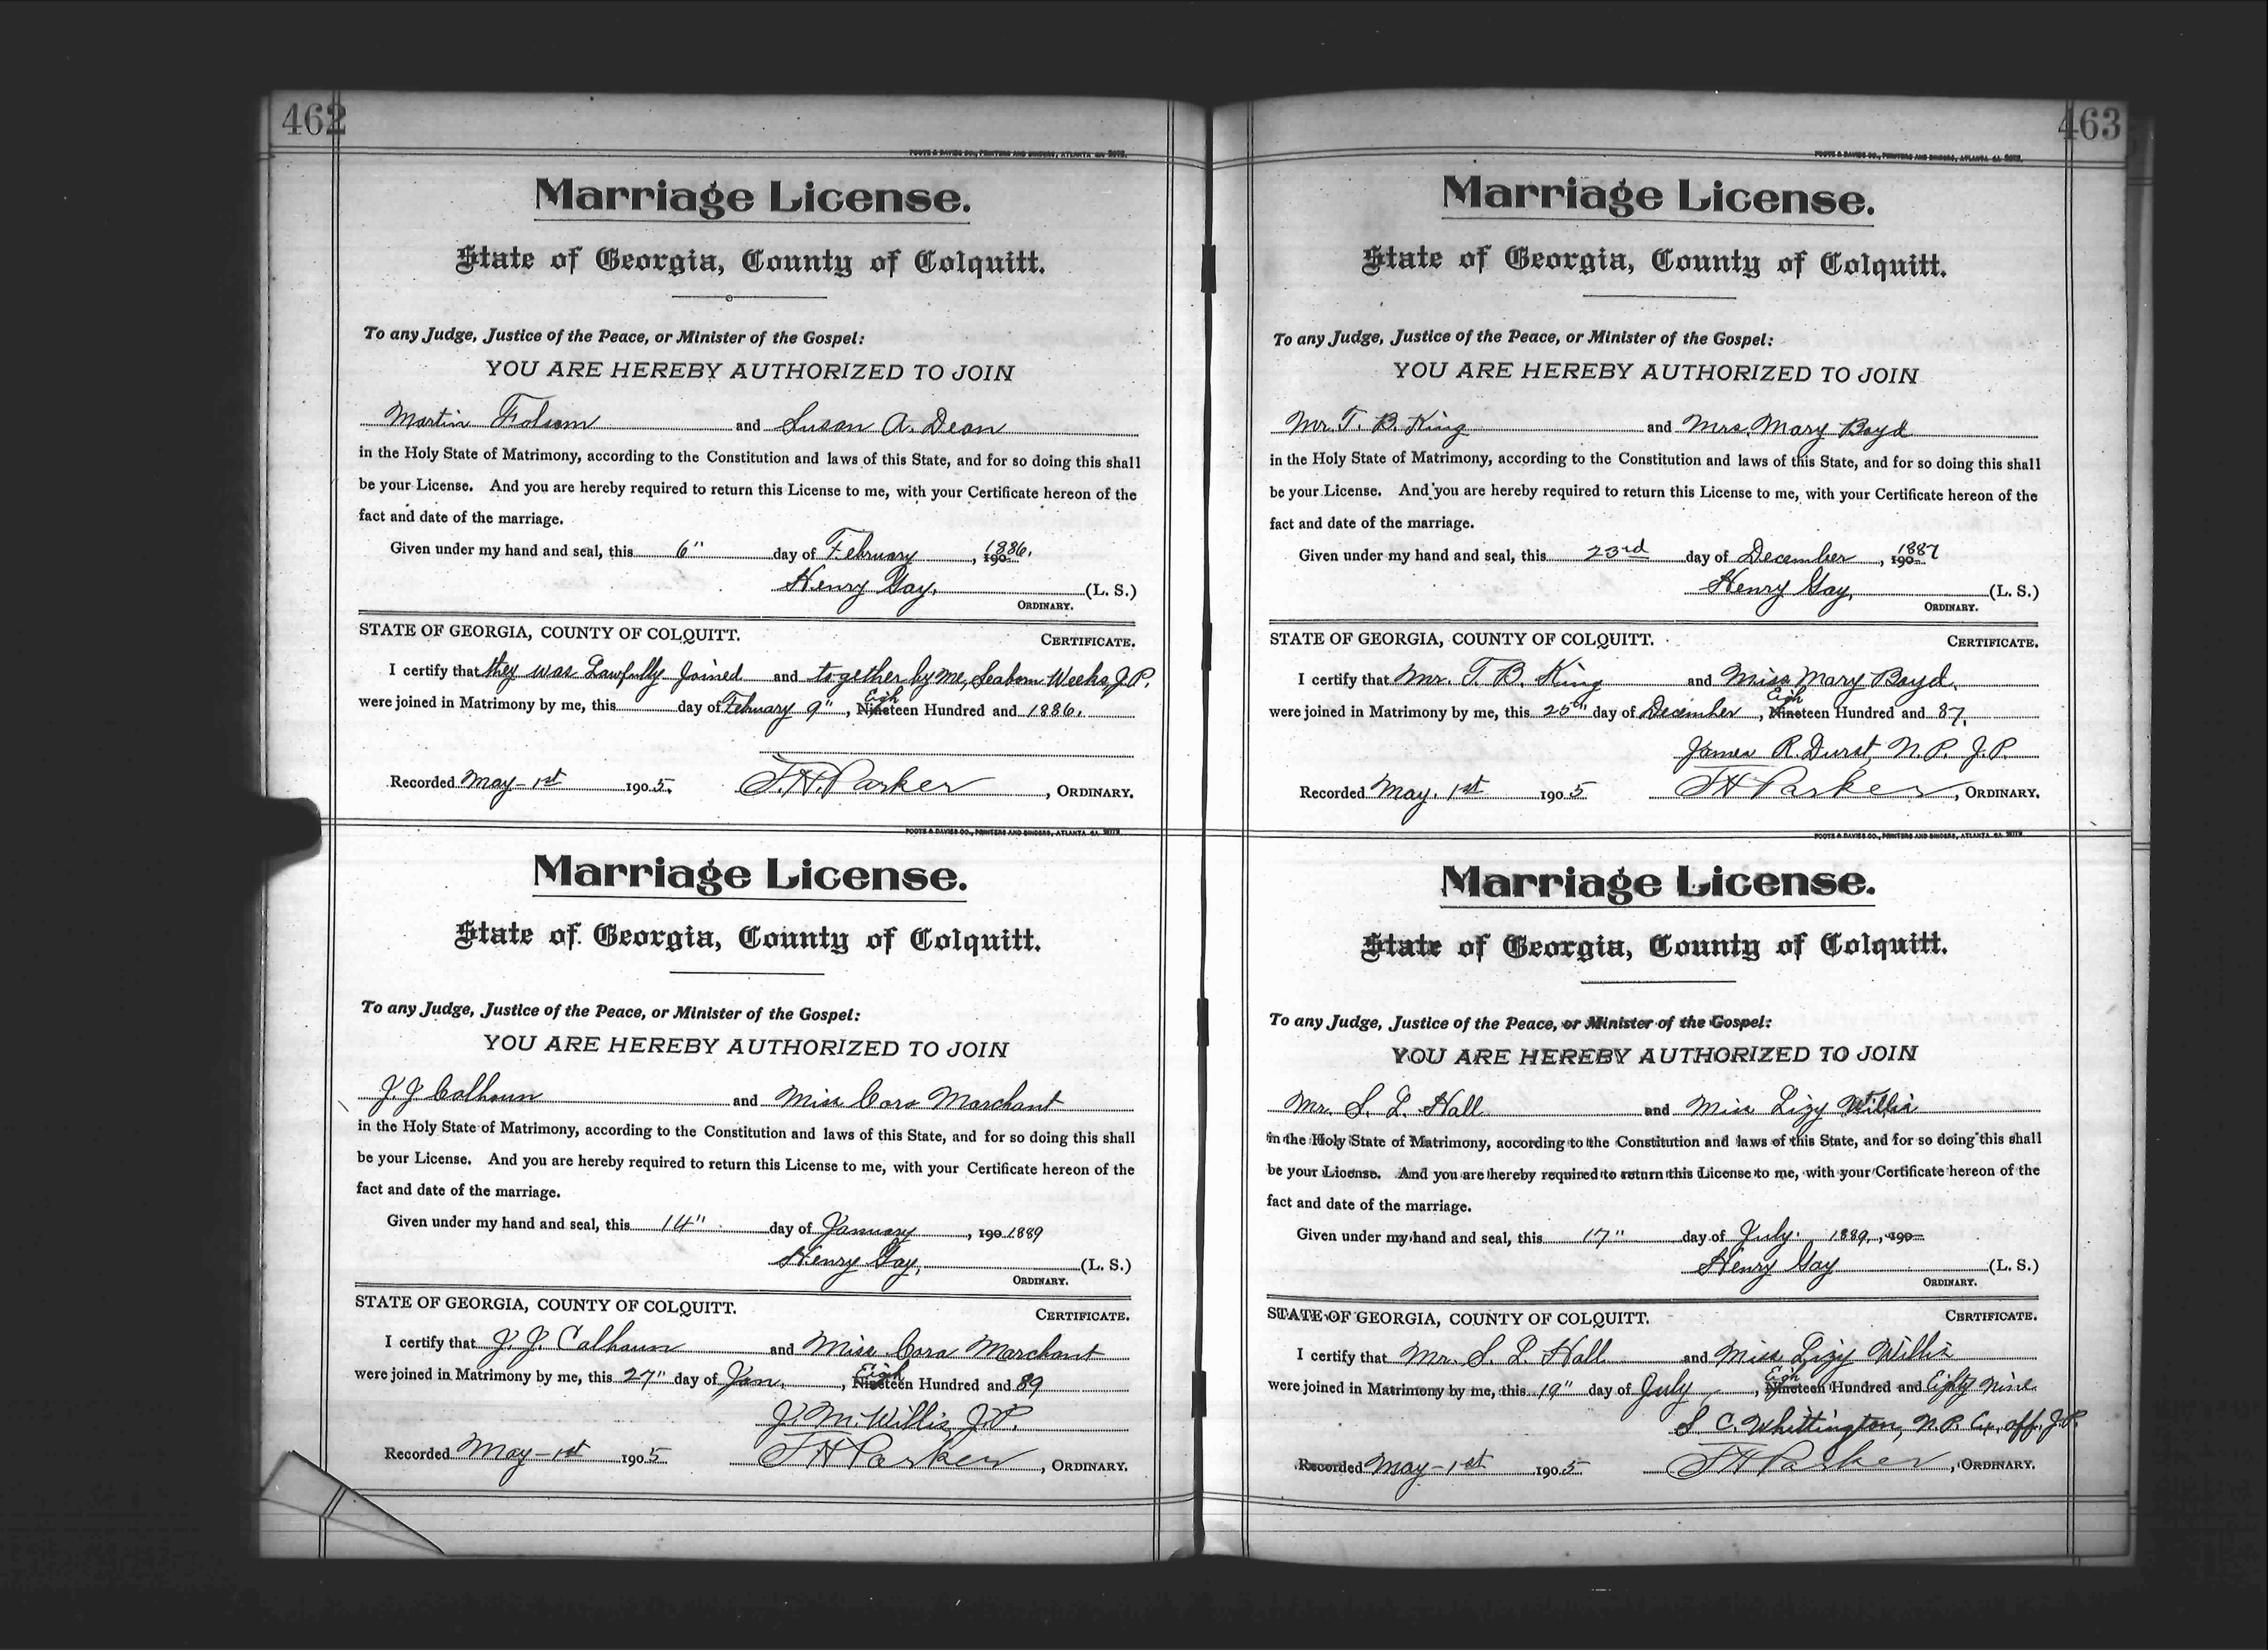 462
FOOTE & DAVIES CO., PRINTERS AND BINDERS, ATLANTA GA.
Marriage License.
State of Georgia, County of Colquitt.
To any Judge, Justice of the Peace, or Minister of the Gospel:
YOU ARE HEREBY AUTHORIZED TO JOIN
Martin Folsom and Susan A. Dean
in the Holy State of Matrimony, according to the Constitution and laws of this State, and for so doing this shall
be your License. And you are hereby required to return this License to me, with your Certificate hereon of the
fact and date of the marriage.
Given under my hand and seal, this 6" day of February, 190 1886.
Henry Gay, (L. S.)
ORDINARY.
STATE OF GEORGIA, COUNTY OF COLQUITT. CERTIFICATE.
I certify that they was Lawfully Joined and together by me, Seaborn Weeks, J.P.
were joined in Matrimony by me, this day of February 9", Nineteen Eigh Hundred and 1886.
Recorded May-1st 1905. T.H. Parker, ORDINARY.
FOOTE & DAVIES CO., PRINTERS AND BINDERS, ATLANTA GA.
Marriage License.
State of Georgia, County of Colquitt.
To any Judge, Justice of the Peace, or Minister of the Gospel:
YOU ARE HEREBY AUTHORIZED TO JOIN
J. J Calhoun and Miss Cora Marchant
in the Holy State of Matrimony, according to the Constitution and laws of this State, and for so doing this shall
be your License. And you are hereby required to return this License to me, with your Certificate hereon of the
fact and date of the marriage.
Given under my hand and seal, this 14" day of January, 190 1889
Henry Gay, (L. S.)
ORDINARY.
STATE OF GEORGIA, COUNTY OF COLQUITT. CERTIFICATE.
I certify that J. J. Calhoun and Miss Cora Marchant
were joined in Matrimony by me, this 27" day of Jan., Nineteen Eigh Hundred and 89
J. M. Willis J.P.
Recorded May-1st 1905 T H Parker, ORDINARY.
463
FOOTE & DAVIES CO., PRINTERS AND BINDERS, ATLANTA GA.
Marriage License.
State of Georgia, County of Colquitt.
To any Judge, Justice of the Peace, or Minister of the Gospel:
YOU ARE HEREBY AUTHORIZED TO JOIN
Mr. T. B. King and Mrs. Mary Boyd
in the Holy State of Matrimony, according to the Constitution and laws of this State, and for so doing this shall
be your License. And you are hereby required to return this License to me, with your Certificate hereon of the
fact and date of the marriage.
Given under my hand and seal, this 23rd day of December, 190 1887
Henry Gay, (L. S.)
ORDINARY.
STATE OF GEORGIA, COUNTY OF COLQUITT. CERTIFICATE.
I certify that Mr. T. B. King and Miss Mary Boyd.
were joined in Matrimony by me, this 25th" day of December, Nineteen Eigh Hundred and 87.
James R. Durst, N.P. J.P.
Recorded May. 1st 1905 T H Parker, ORDINARY.
FOOTE & DAVIES CO., PRINTERS AND BINDERS, ATLANTA GA.
Marriage License.
State of Georgia, County of Colquitt.
To any Judge, Justice of the Peace, or Minister of the Gospel:
YOU ARE HEREBY AUTHORIZED TO JOIN
Mr. S. L. Hall and Miss Lizy Willis
in the Holy State of Matrimony, according to the Constitution and laws of this State, and for so doing this shall
be your License. And you are hereby required to return this License to me, with your Certificate hereon of the
fact and date of the marriage.
Given under my hand and seal, this 17" day of July. 1889., 190
Henry Gay (L. S.)
ORDINARY.
STATE OF GEORGIA, COUNTY OF COLQUITT. CERTIFICATE.
I certify that Mr. S. L. Hall and Miss Lizy Willis
were joined in Matrimony by me, this 19" day of July, Nineteen Eigh Hundred and Eighty nine
S. C. Whittington, N.P. Ex. off. J.P.
Recorded May-1st 1905 T H Parker, ORDINARY.